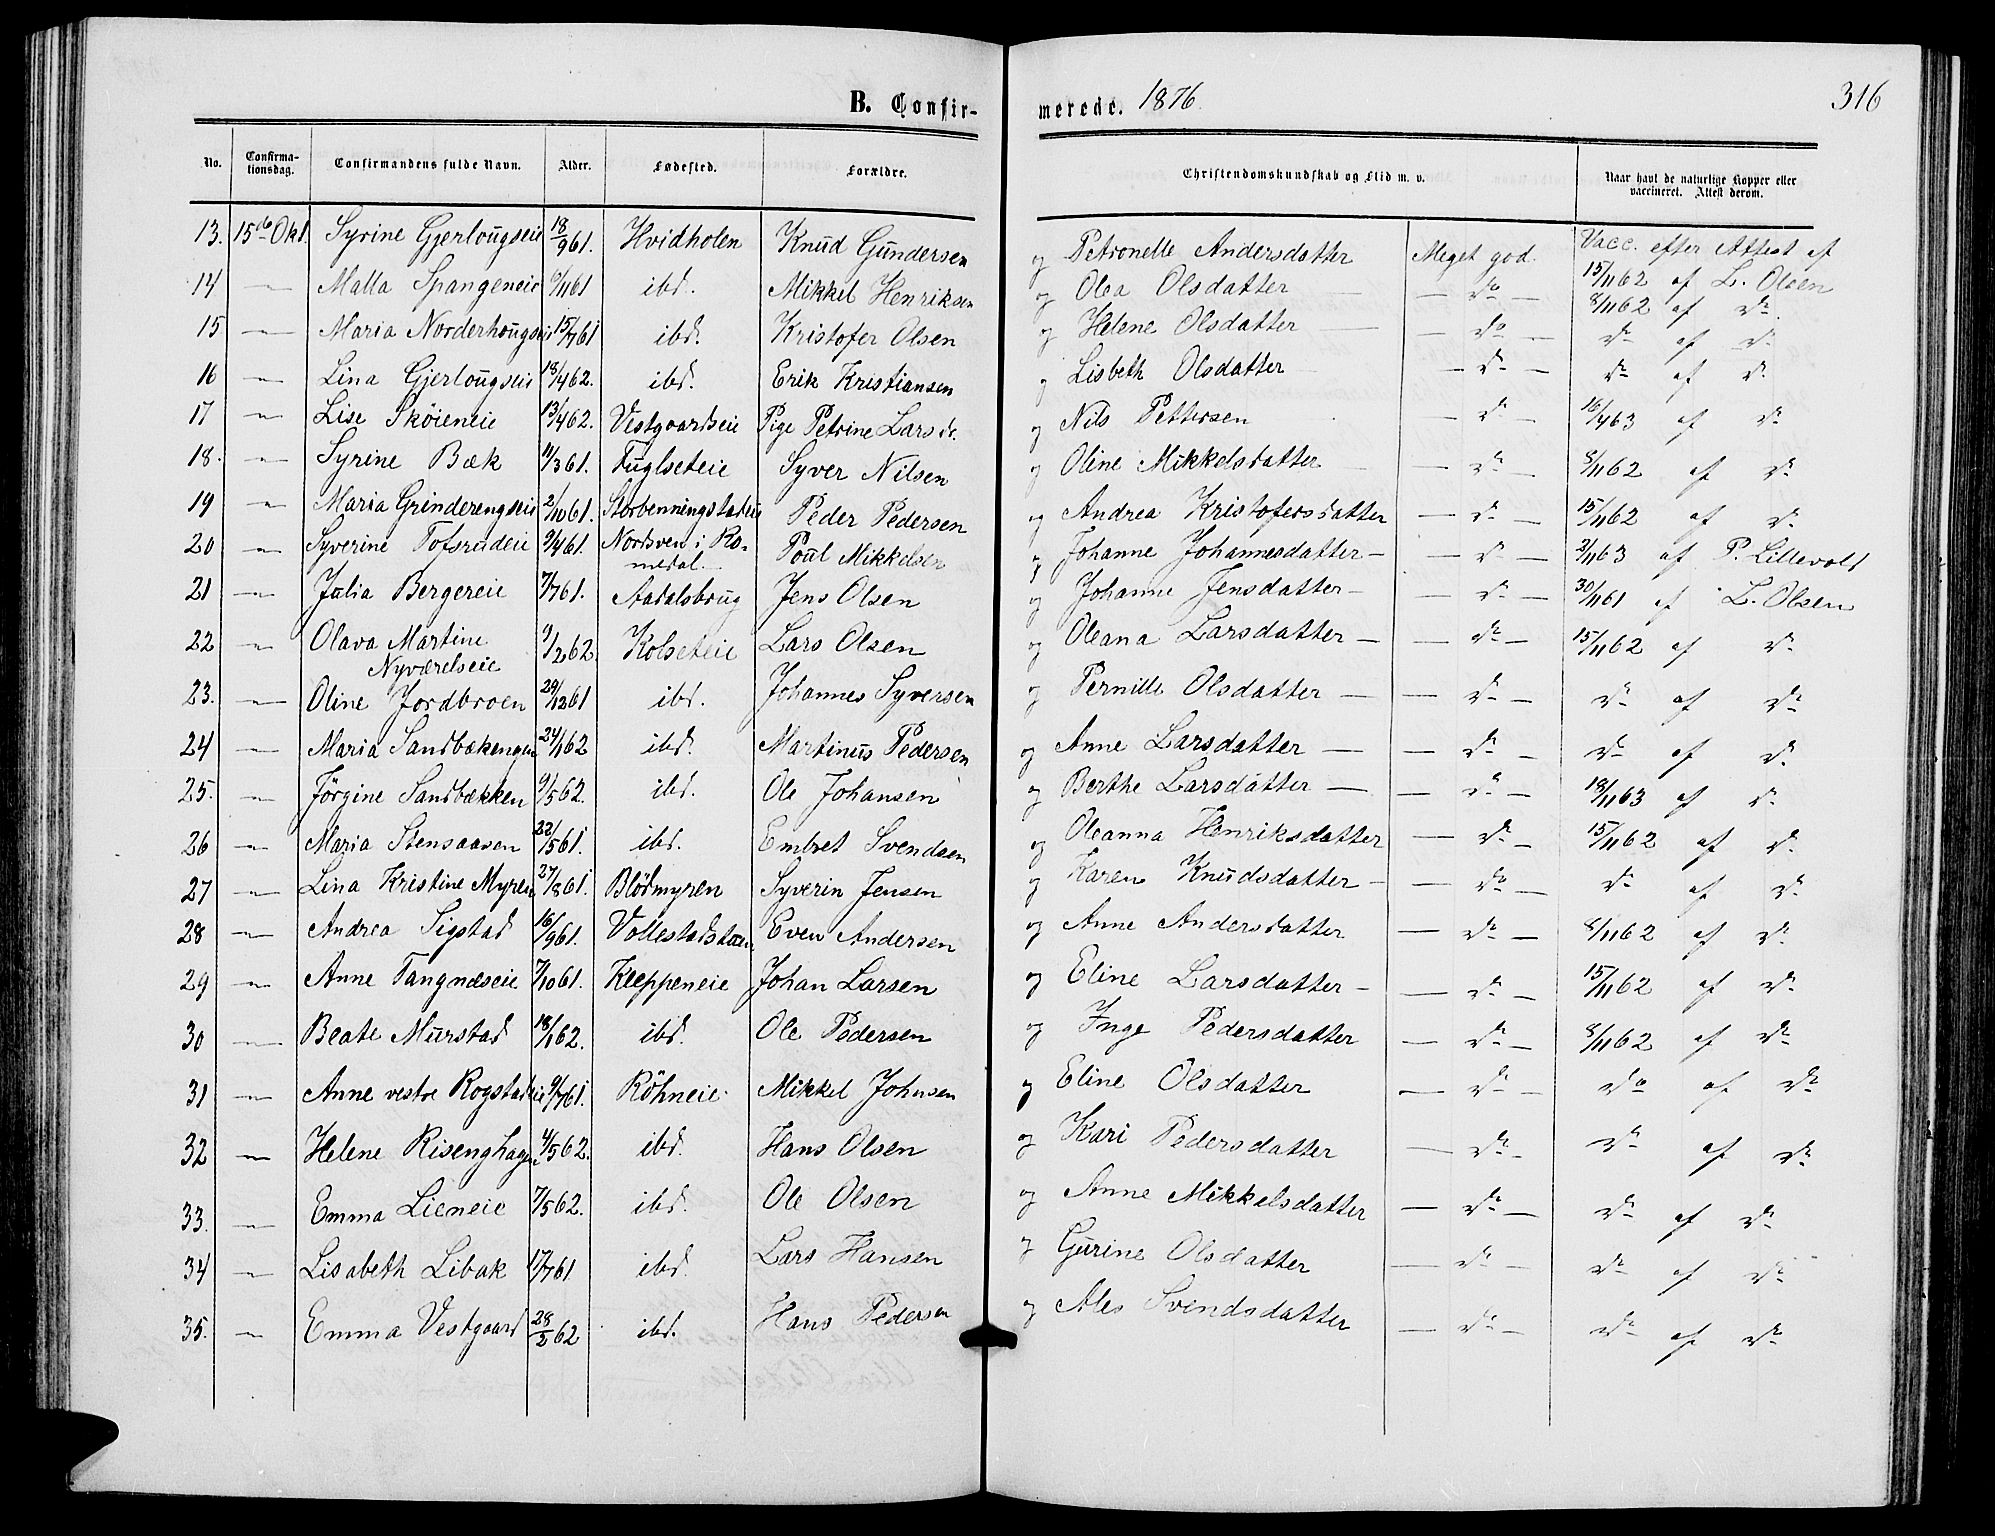 B. Confirmerede. 1876. 316
No. Confirmationsdag. Confirmandens fulde Navn. Alder. Fødested. Forældre. Christendomskundskab og Flid m. v. Naar havt de naturlige Kopper eller vaccineret. Attest derom.
13. 15de Okt. Syrine Gjerlougseie 18/961. Hvidholen Knud Gundersen og Petronelle Andersdatter Meget god. Vacc. efter Attest af 15/1162 af L. Olsen
14 — Malla Spangeneie 6/1161 ibd. Mikkel Henriksen og Olea Olsdatter — do — 8/1162 af do.
15 — Maria Norderhougseie 15/761 ibd. Kristofer Olsen og Helene Olsdatter — — do — do af do
16 — Lina Gjerlougseie 18/462. ibd. Erik Kristiansen og Lisbeth Olsdatter — do — do af do
17 — Lise Sköieneie 13/462. Vestgaardseie Pige Petrine Larsdr. og Nils Pettersen — do — 16/463 af do
18. — Syrine Bæk 11/361. Fuglseteie Syver Nilsen og Oline Mikkelsdatter — do — 8/1162 af do
19 — Maria Grinderengseie 2/1061. Storbenningstadeie Peder Pedersen og Andrea Kristofersdatter — do — 15/1162 af do
20 — Syverine Tofsrudeie 9/461. Nordsven i Romedal. Poul Mikkelsen og Johanne Johannesdatter — — do — 2/1163 af P. Lillevold
21 — Julia Bergereie 7/761. Aadalsbrug Jens Olsen og Johanne Jensdatter — — do — 30/1161 af L. Olsen
22 — Olava Martine Nyværelseie 9/262. Kolseteie Lars Olsen og Oleana Larsdatter — — do — 15/1162 af do
23. — Oline Jordbroen 29/1261 ibd. Johannes Syversen og Pernille Olsdatter — — do — do af do
24 — Maria Sandbækengen 24/162 ibd. Martinus Pedersen og Anne Larsdatter — — do — do af do
25. — Jörgine Sandbækken 9/562. ibd. Ole Johansen og Berthe Larsdatter — — do — 18/1163 af do
26 — Maria Stensaasen 22/561. ibd. Embret Svendsen og Oleanna Henriksdatter — do — 15/1162 af do
27 — Lina Kristine Myren 27/861. Blödmyren Syverin Jensen og Karen Knudsdatter — — do — do af do
28 — Andrea Sigstad 16/961. Vollestadstuen Even Andersen og Anne Andersdatter — do — 8/1162 af do
29 — Anne Tangnæseie 7/1061. Kleppeneie Johan Larsen og Eline Larsdatter — — do — 15/1162 af do
30 — Beate Murstad 18/162. ibd. Ole Pedersen og Inge Pedersdatter — do — 8/1162 af do
31 — Anne vestre Rogstadeie 9/761. Röhneie Mikkel Johnsen og Eline Olsdatter — do — do af do
32 — Helene Risenghagen 4/562. ibd. Hans Olsen og Kari Pedersdatter — do — do af do
33. — Emma Lieneie 7/562. ibd. Ole Olsen og Anne Mikkelsdatter — do — do af do
34 — Lisabeth Libak 17/761 ibd. Lars Hansen og Gurine Olsdatter — do — do af do
35. — Emma Vestgaard 28/262 ibd. Hans Pedersen og Ales Svendsdatter — do — do af do